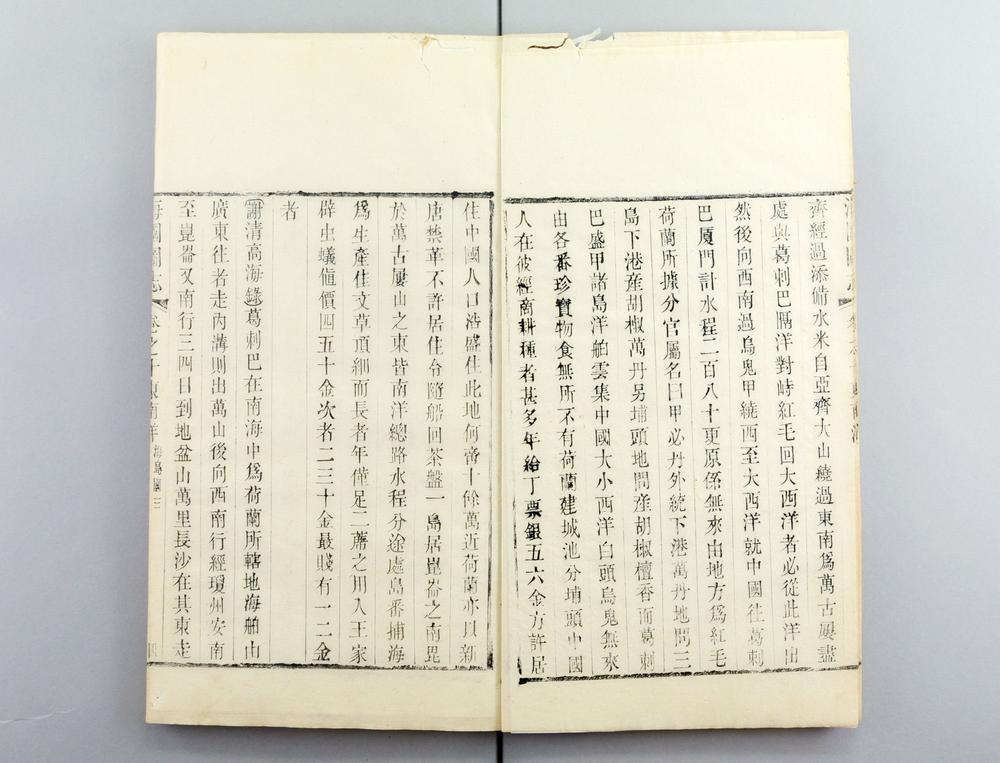 齊經過添備水米自亞齊大山繞過東南爲萬古屢盡
處與葛剌巴隔洋對峙紅毛回大西洋者必從此洋出
然後向西南過烏鬼甲繞西至大西洋就中國往葛剌
巴厦門計水程二百八十更原係無來由地方爲紅毛
荷蘭所據分官屬名曰甲必丹外統下港萬丹地問三
島下港產胡椒萬丹另埔頭地問產胡椒檀香而葛剌
巴盛甲諸島洋舶雲集中國大小西洋白頭烏鬼無來
由各番珍寶物食無所不有荷蘭建城池分埔頭中國
人在彼經商耕種者甚多年給丁票銀五六金方許居
住中國人口浩盛住此地何啻十餘萬近荷蘭亦以新
唐禁革不許居住令隨船回茶盤一島居崑崙之南毘
於萬古屢山之東皆南洋總路水程分途處島番捕海
爲生產佳文草頂細而長者年僅足二蓆之用入王家
辟虫蟻値價四五十金次者二三十金最賤有一二金
者
謝清高海錄葛剌巴在南海中爲荷蘭所轄地海舶由
廣東往者走內溝則出萬山後向西南行經瓊州安南
至崑崙又南行三四日到地盆山萬里長沙在其東走
海國圖志 卷之十 東南洋 海島國三 四